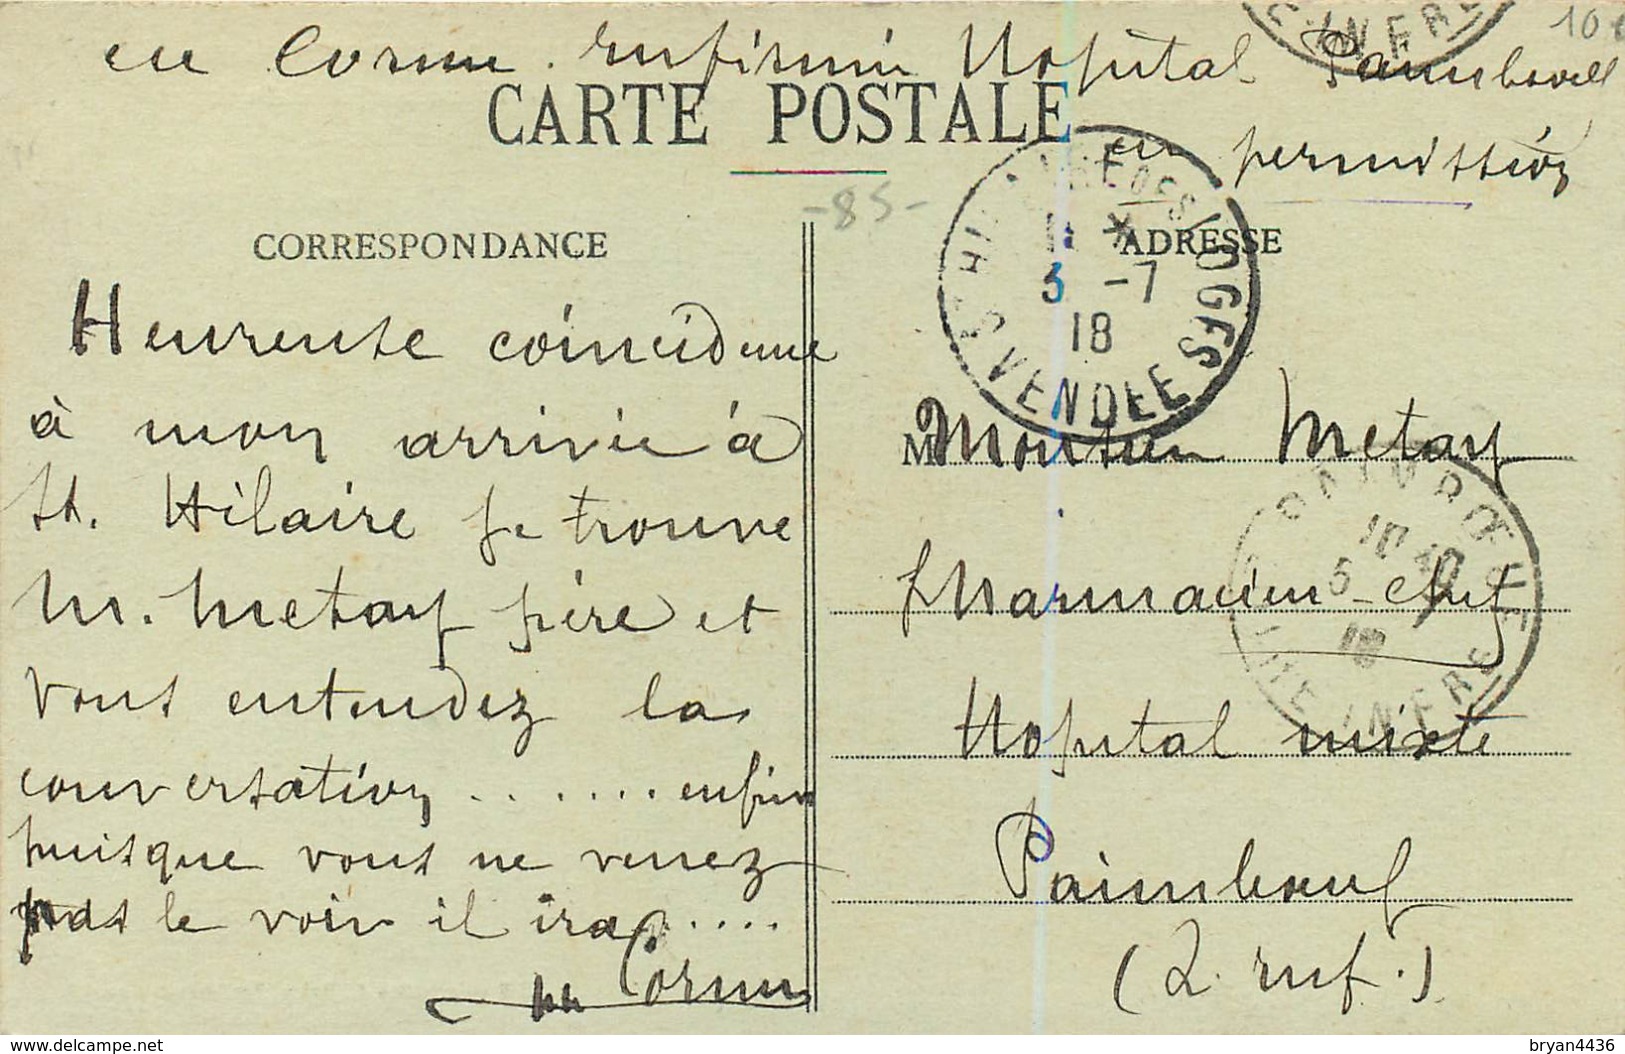 infirmier Hopital Paimboeuf
en permission
CARTE POSTALE
-85-
CORRESPONDANCE
ADRESSE
Heureuse coincidence
à mon arrivée à
St. Hilaire je trouve
M. Metay père et
vous entendez la
conversation ....... enfin
puisque vous ne venez
pas le voir il ira .....
ST HILAIRE DES VOGES
3 -7
18
VENDEE
M Monsieur Metay
Pharmacien-chef
Hopital mixte
Paimboeuf
(L. inf.)
PAIMBOEUF
5
18
INFRE
bryan4436
www.delcampe.net